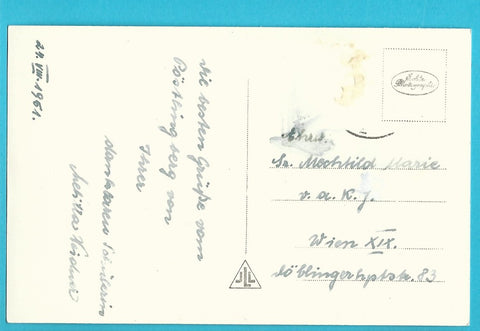 24. VIII. 1961.
Die besten Grüße vom
Pöstlingberg von
Ihrer
dankbaren Schülerin
Echte
Photographie
Ehrw.
Sr. Mechtild Marie
v. a. K. J.
Wien XIX.
Döblingerhptstr. 83